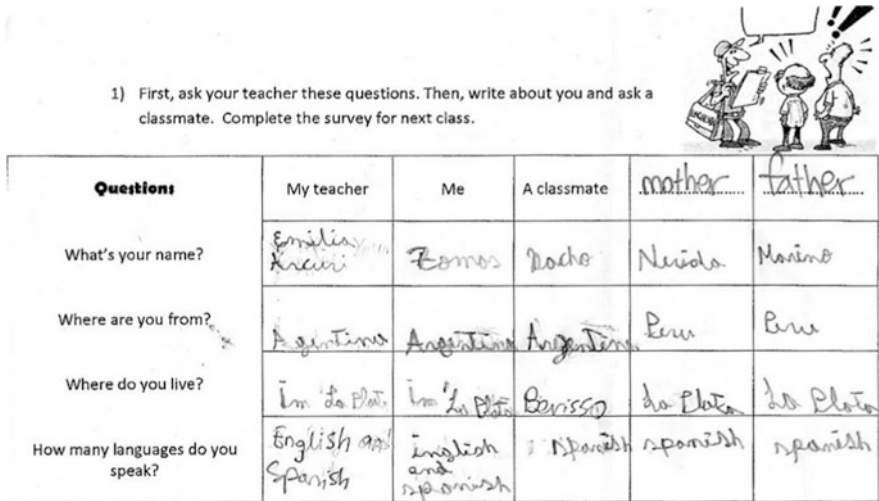 1) First, ask your teacher these questions. Then, write about you and ask a
classmate. Complete the survey for next class.
Questions My teacher Me A classmate mother father
What's your name? Emilia Arcuri Tomas Nacho Nerida Marino
Where are you from? Agentina Argentina Argentina Peru Peru
Where do you live? Im La Plata Im La Plata Berisso La Plata La Plata
How many languages do you speak? English and Spanish inglish and spanish spanish spanish spanish